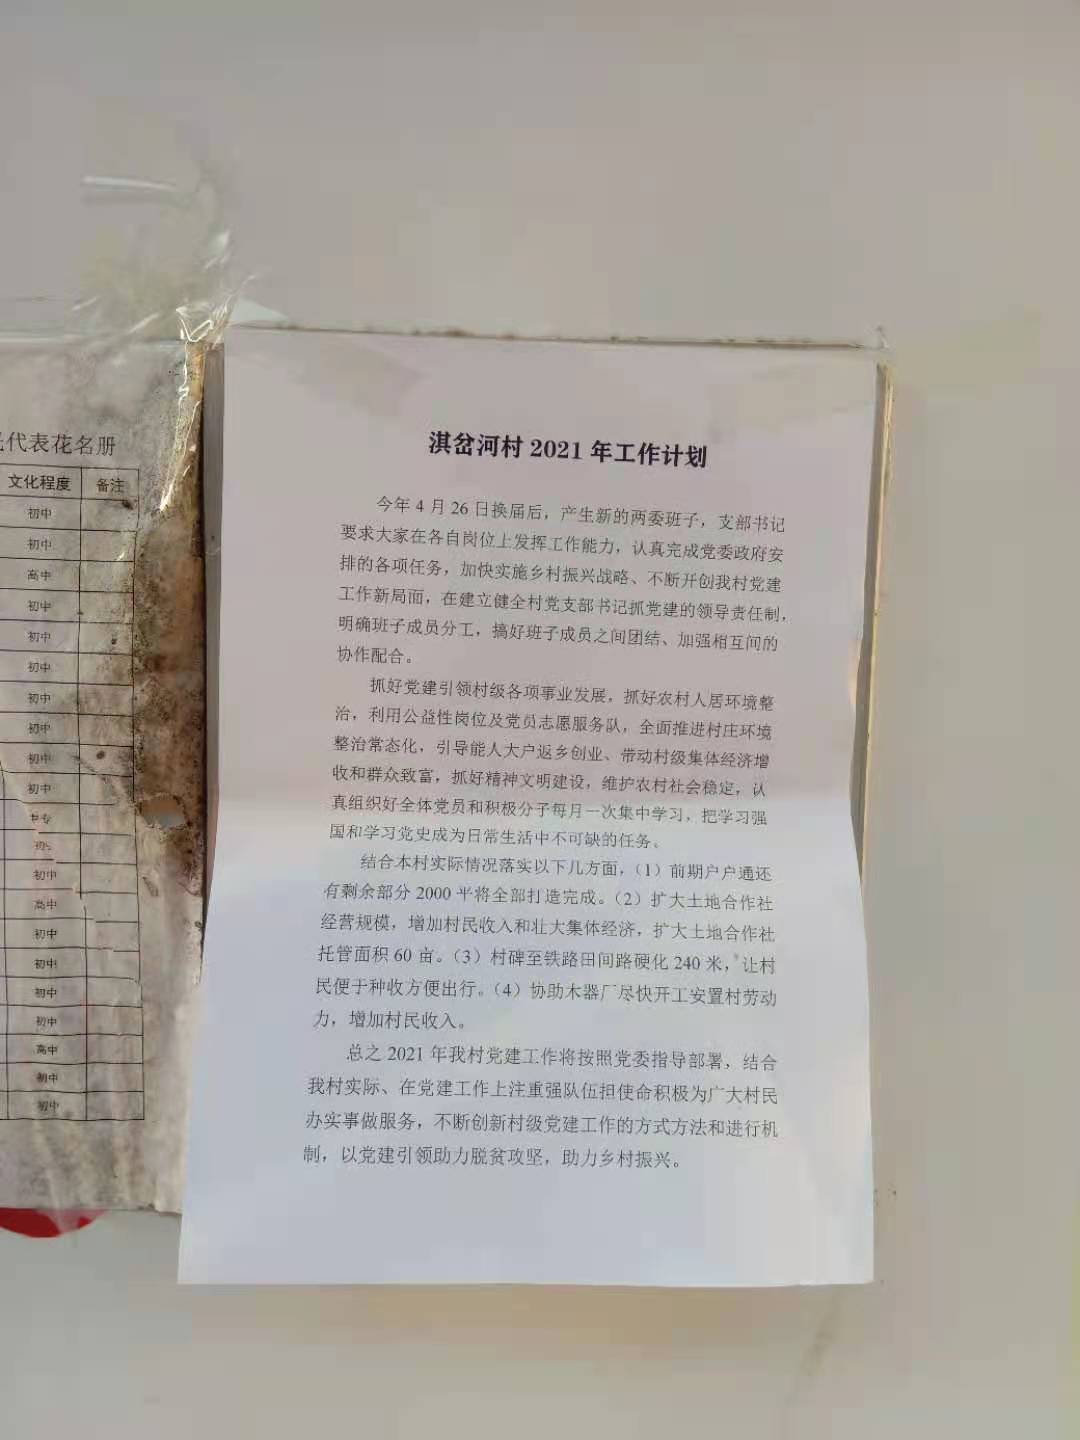 代表花名册
文化程度 备注
初中
初中
高中
初中
初中
初中
初中
初中
初中
初中
中专
初中
高中
初中
初中
初中
初中
高中
初中
初中
淇岔河村 2021 年工作计划
今年 4 月 26 日换届后，产生新的两委班子，支部书记
要求大家在各自岗位上发挥工作能力，认真完成党委政府安
排的各项任务，加快实施乡村振兴战略、不断开创我村党建
工作新局面，在建立健全村党支部书记抓党建的领导责任制，
明确班子成员分工，搞好班子成员之间团结、加强相互间的
协作配合。
抓好党建引领村级各项事业发展，抓好农村人居环境整
治，利用公益性岗位及党员志愿服务队，全面推进村庄环境
整治常态化，引导能人大户返乡创业、带动村级集体经济增
收和群众致富，抓好精神文明建设，维护农村社会稳定，认
真组织好全体党员和积极分子每月一次集中学习，把学习强
国和学习党史成为日常生活中不可缺的任务。
结合本村实际情况落实以下几方面，（1）前期户户通还
有剩余部分 2000 平将全部打造完成。（2）扩大土地合作社
经营规模，增加村民收入和壮大集体经济，扩大土地合作社
托管面积 60 亩。（3）村碑至铁路田间路硬化 240 米，让村
民便于种收方便出行。（4）协助木器厂尽快开工安置村劳动
力，增加村民收入。
总之 2021 年我村党建工作将按照党委指导部署，结合
我村实际、在党建工作上注重强队伍担使命积极为广大村民
办实事做服务，不断创新村级党建工作的方式方法和进行机
制，以党建引领助力脱贫攻坚，助力乡村振兴。